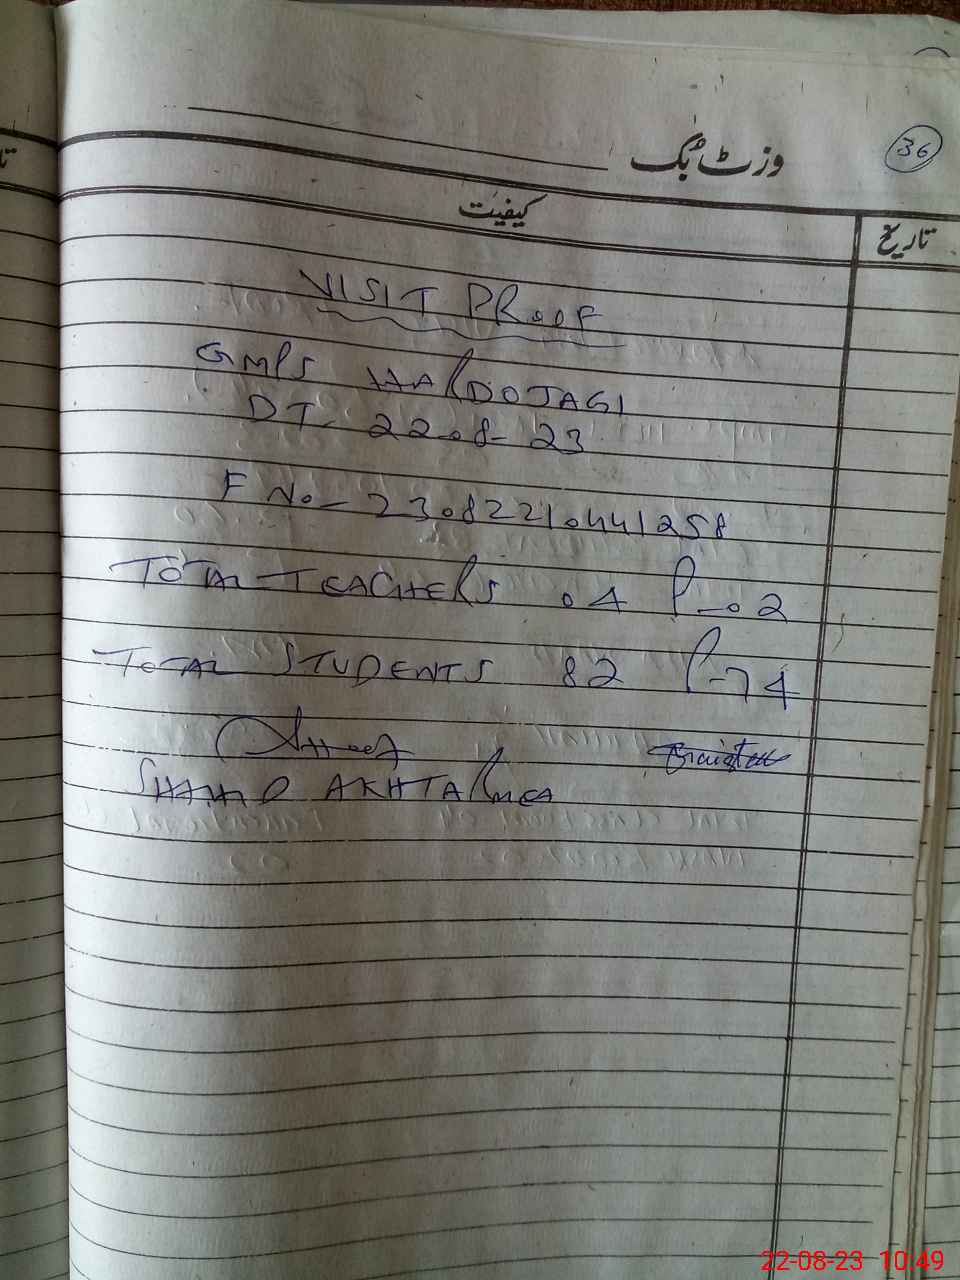 وزٹ بُک
36
کیفیت
تاریخ
VISIT PROOF
GMPS HARDOJAGI
DT- 22.8-23
F No- 23082210441258
TOTAL TEACHERS 04 P-02
TOTAL STUDENTS 82 P-74
SHAHID AKHTAR MEA
22-08-23 10:49